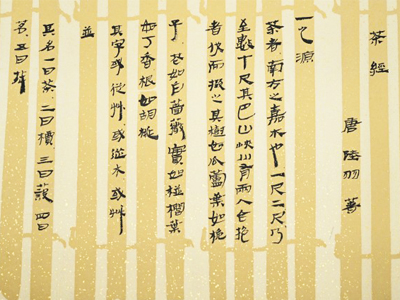 茶經　唐　陸羽　著
一之源
茶者南方之嘉木也一尺二尺乃
至數十尺其巴山峽川有兩人合抱
者伐而掇之其樹如瓜蘆葉如梔
子花如白薔薇實如栟櫚葉
如丁香根如胡桃
其字或從艸或從木或艸
並
其名一曰茶二曰檟三曰蔎四曰
茗五曰荈